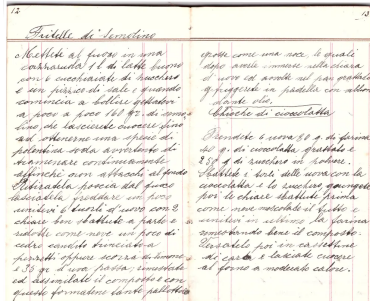 12
Fritelle di Semolino
Mettete al fuoco in una
cazzaruola 1 l di latte buono
con 6 cucchiaiate di zucchero
ed un pizzico di sale e quando
comincia a bollire gettatevi
a poco a poco 160 gr. di semo
lino, che lascerete cuocere fino
ad ottenerne una specie di
polentina soda avvertendo di
tramenare continuamente
affinchè non attacchi al fondo
Ritiratela poscia dal fuoco
lasciatela freddare un poco
unitevi 4 tuorli d'uovo con 2
chiare ben sbattute a parte e
ridotte come neve un poco di
cedro candito trinciato a
pezzetti oppure scorza di limone
e 35 gr. d'uva passa
ed assimilate il composto con
questo formatene tante pallottole
13
grosse come una noce, le quali
dopo averle immerse nella chiara
d'uovo ed avvolte nel pan grattato
friggerete in padella con abbon
dante olio.
di cioccolatta
Prendete 6 uova 80 g. di farina
40 g. di cioccolatta grattato e
250 g di zucchero in polvere.
Sbattete i torli delle uova con la
cioccolatta e lo zucchero, giungete
poi le chiare sbattute prima
come neve mescolate il tutto e
unitevi in ultimo la farina
rimestando bene il composto.
Versatelo poi in cassettine
di carta e lasciate cuocere
al forno a moderato calore.